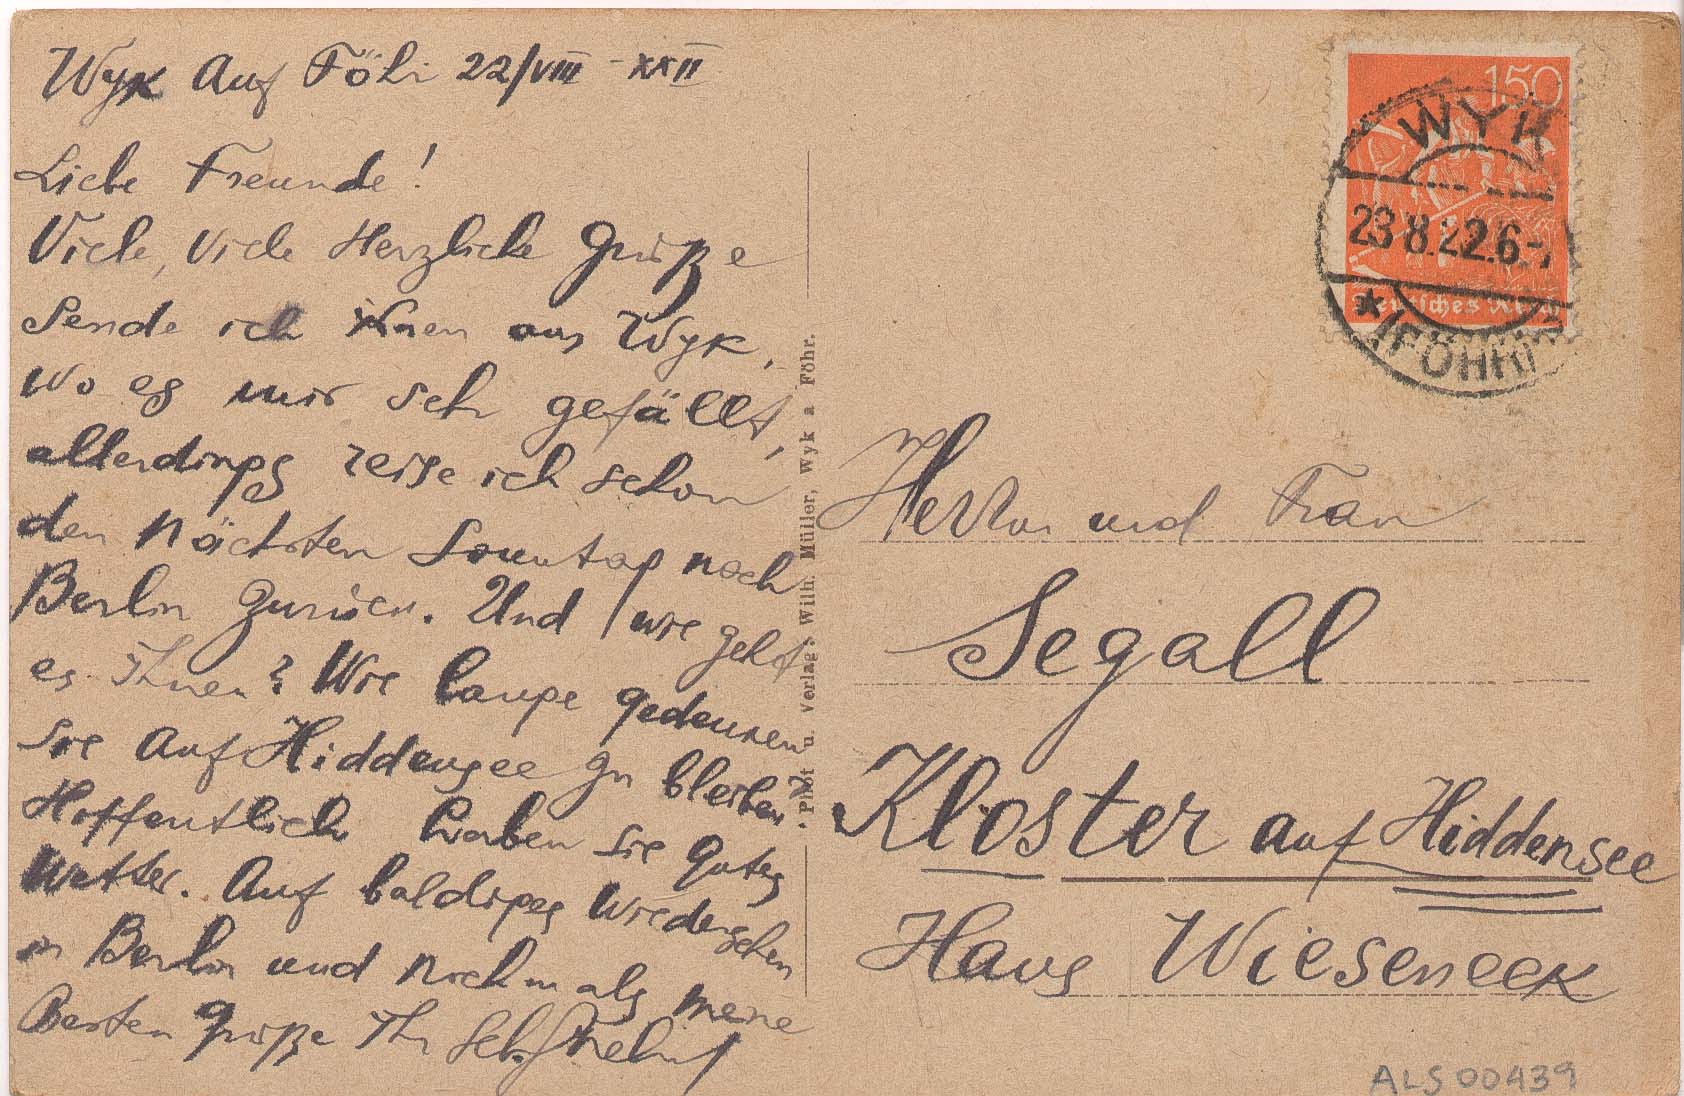 Wyk auf Föhr 22/VIII - XXII
Liebe Freunde!
Viele, viele Herzliche Grüße
sende ich Ihnen aus Wyk,
wo es mir sehr gefällt,
allerdings reise ich schon
den nächsten Sonntag nach
Berlin zurück. Und wie geht
es Ihnen? Wie lange gedenken
Sie auf Hiddensee zu bleiben?
Hoffentlich haben Sie gutes
Wetter. Auf baldiges Wiedersehen
in Berlin und nochmals meine
Besten Grüße Ihr
Phot u. Verlag: Wilh. Müller, Wyk a Föhr.
150
Deutsches Reich
WYK
23.8.22.6-7
* (FÖHR)
Herrn und Frau
Segall
Kloster auf Hiddensee
Haus Wieseneck
ALS 00439